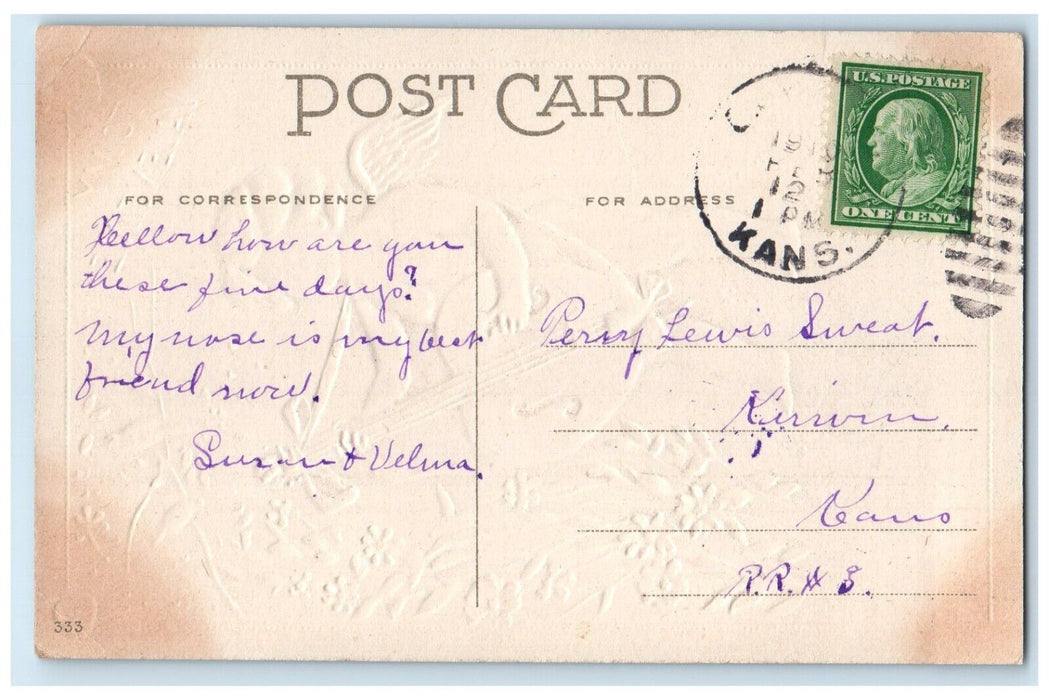 POST CARD
U.S. POSTAGE
ONE CENT
12
1 PM
KANS.
FOR CORRESPONDENCE
FOR ADDRESS
Hellow how are you
these fine days?
My nose is my best
friend now.
Susan & Velma.
Perry Lewis Sweat.
Kirwin,
Kans
R.R. # 3.
333